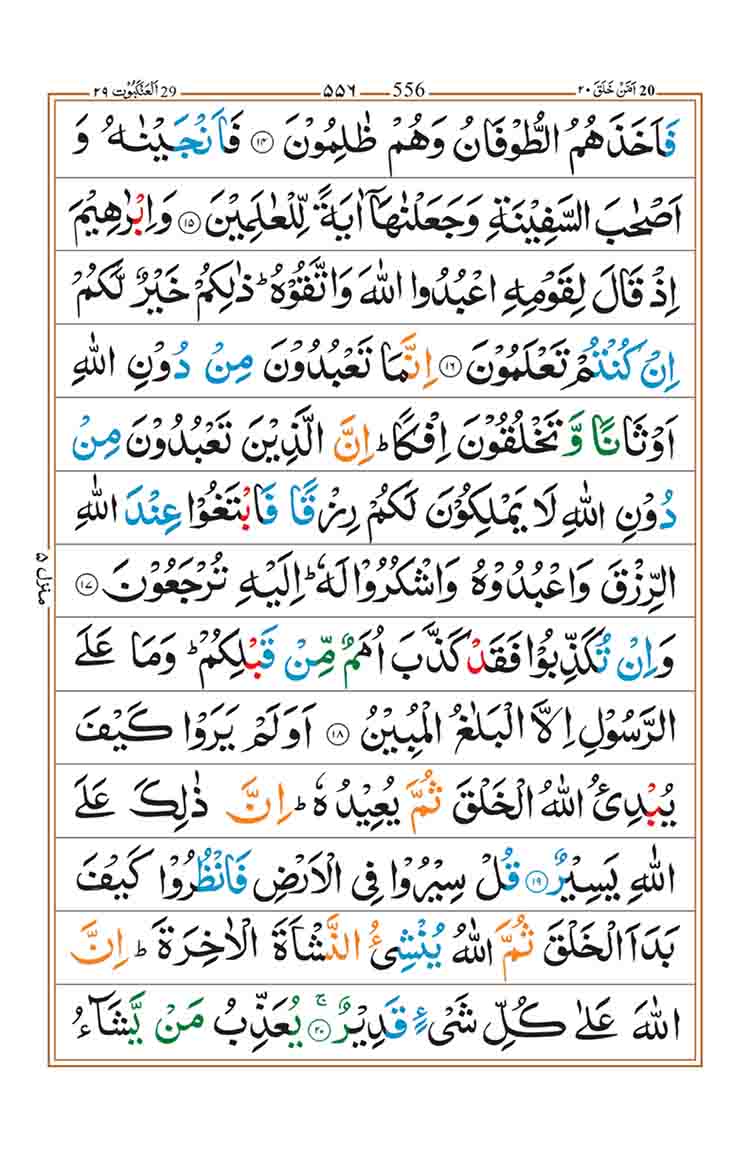 20 اَمَّنْ خَلَقَ ٢٠ 556 ٥٥٦ 29 اَلْعَنْكَبُوْت ٢٩
فَاَخَذَهُمُ الطُّوْفَانُ وَهُمْ ظٰلِمُوْنَ ۝١٤ فَاَنْجَيْنٰهُ وَ
اَصْحٰبَ السَّفِيْنَةِ وَجَعَلْنٰهَاۤ اٰيَةً لِّلْعٰلَمِيْنَ ۝١٥ وَاِبْرٰهِيْمَ
اِذْ قَالَ لِقَوْمِهِ اعْبُدُوا اللّٰهَ وَاتَّقُوْهُ ؕ ذٰلِكُمْ خَيْرٌ لَّكُمْ
اِنْ كُنْتُمْ تَعْلَمُوْنَ ۝١٦ اِنَّمَا تَعْبُدُوْنَ مِنْ دُوْنِ اللّٰهِ
اَوْثَانًا وَّ تَخْلُقُوْنَ اِفْكًا ؕ اِنَّ الَّذِيْنَ تَعْبُدُوْنَ مِنْ
دُوْنِ اللّٰهِ لَا يَمْلِكُوْنَ لَكُمْ رِزْقًا فَابْتَغُوْا عِنْدَ اللّٰهِ
الرِّزْقَ وَاعْبُدُوْهُ وَاشْكُرُوْا لَهٗ ؕ اِلَيْهِ تُرْجَعُوْنَ ۝١٧
وَاِنْ تُكَذِّبُوْا فَقَدْ كَذَّبَ اُمَمٌ مِّنْ قَبْلِكُمْ ؕ وَمَا عَلَى
الرَّسُوْلِ اِلَّا الْبَلٰغُ الْمُبِيْنُ ۝١٨ اَوَلَمْ يَرَوْا كَيْفَ
يُبْدِئُ اللّٰهُ الْخَلْقَ ثُمَّ يُعِيْدُهٗ ؕ اِنَّ ذٰلِكَ عَلَى
اللّٰهِ يَسِيْرٌ ۝١٩ قُلْ سِيْرُوْا فِى الْاَرْضِ فَانْظُرُوْا كَيْفَ
بَدَاَ الْخَلْقَ ثُمَّ اللّٰهُ يُنْشِئُ النَّشْاَةَ الْاٰخِرَةَ ؕ اِنَّ
اللّٰهَ عَلٰى كُلِّ شَىْءٍ قَدِيْرٌ ۝٢٠ۚ يُعَذِّبُ مَنْ يَّشَآءُ
منزل ٥